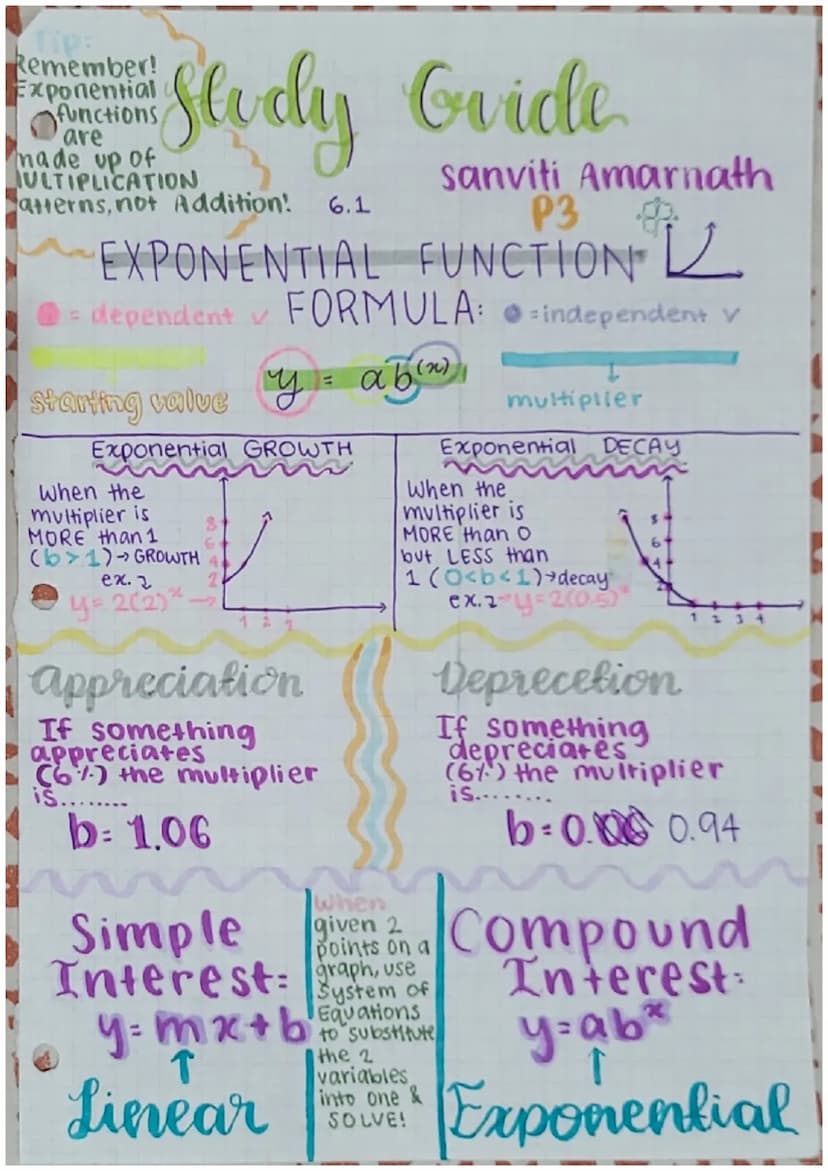 Tip:
Remember!
Exponential
functions
are
made up of
MULTIPLICATION
patterns, not Addition!
Study Guide
Sanviti Amarnath
6.1
P3
EXPONENTIAL FUNCTION
FORMULA:
= dependent ✓
= independent ✓
starting value
y = ab(x)
multiplier
Exponential GROWTH
When the
multiplier is
MORE than 1
(b > 1) → GROWTH
ex. 2
y = 2(2)ˣ →
8
6
4
2
1 2 3
Exponential DECAY
When the
multiplier is
MORE than 0
but LESS than
1 (0<b<1) → decay
ex. 2 → y = 2(0.5)ˣ
8
6
4
2
1 2 3 4
Appreciation
If something
appreciates
(6%) the multiplier
is........
b = 1.06
Deprecetion
If something
depreciates
(6%) the multiplier
is........
b = 0. 0.94
Simple
Interest:
y = mx + b
↑
Linear
When
given 2
points on a
graph, use
System of
Equations
to substitute
the 2
variables
into one &
SOLVE!
Compound
Interest:
y = abˣ
↑
Exponential